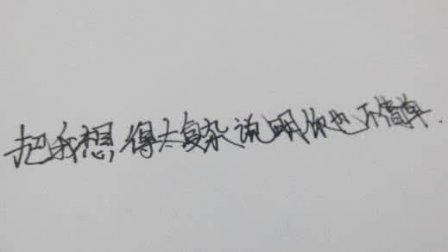 把我想得太复杂说明你也不简单.